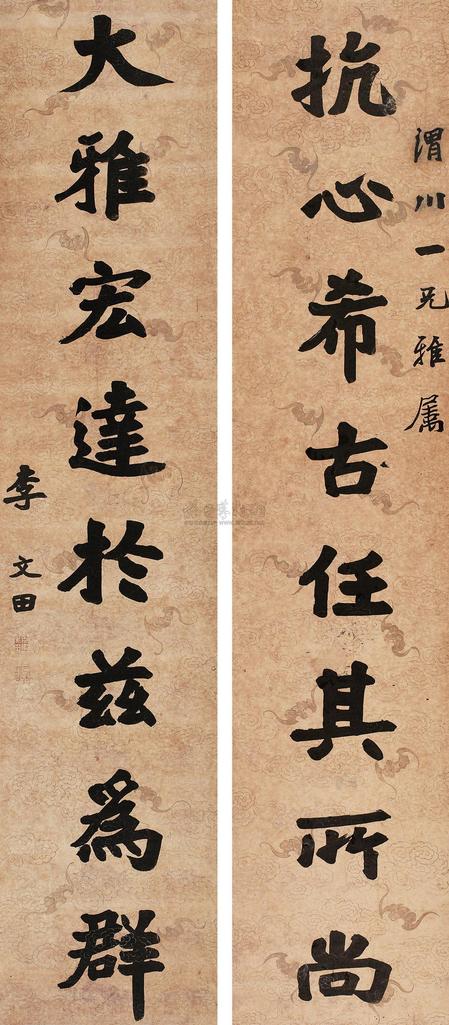 渭川一兄雅属
抗心希古任其所尚
大雅宏達於兹為群
李文田